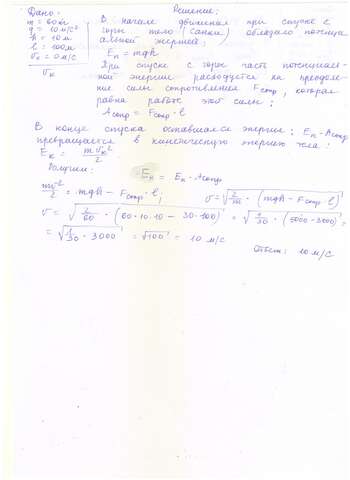 Дано:
m = 60 кг
g = 10 м/с²
h = 10 м
l = 100 м
v₀ = 0 м/с
vк
Решение:
В начале движения при спуске с
горы тело (санки) обладало потенци
альной энергией:
Eп = mgh
При спуске с горы часть потенциаль-
ной энергии расходуется на преодоле-
ние силы сопротивления Fсопр, которая
равна работе этой силы:
Aсопр = Fсопр · l
В конце спуска оставшаяся энергия: Eп - Aсопр
превращается в кинетическую энергию тела:
Eк = mvк²/2
Получим:
Eк = Eп - Aсопр
mv²/2 = mgh - Fсопр · l; v = √(2/m · (mgh - Fсопр · l))
v = √(2/60 · (60·10·10 - 30·100)) = √(1/30 · (6000-3000)) =
= √(1/30 · 3000) = √100 = 10 м/с
Ответ: 10 м/с